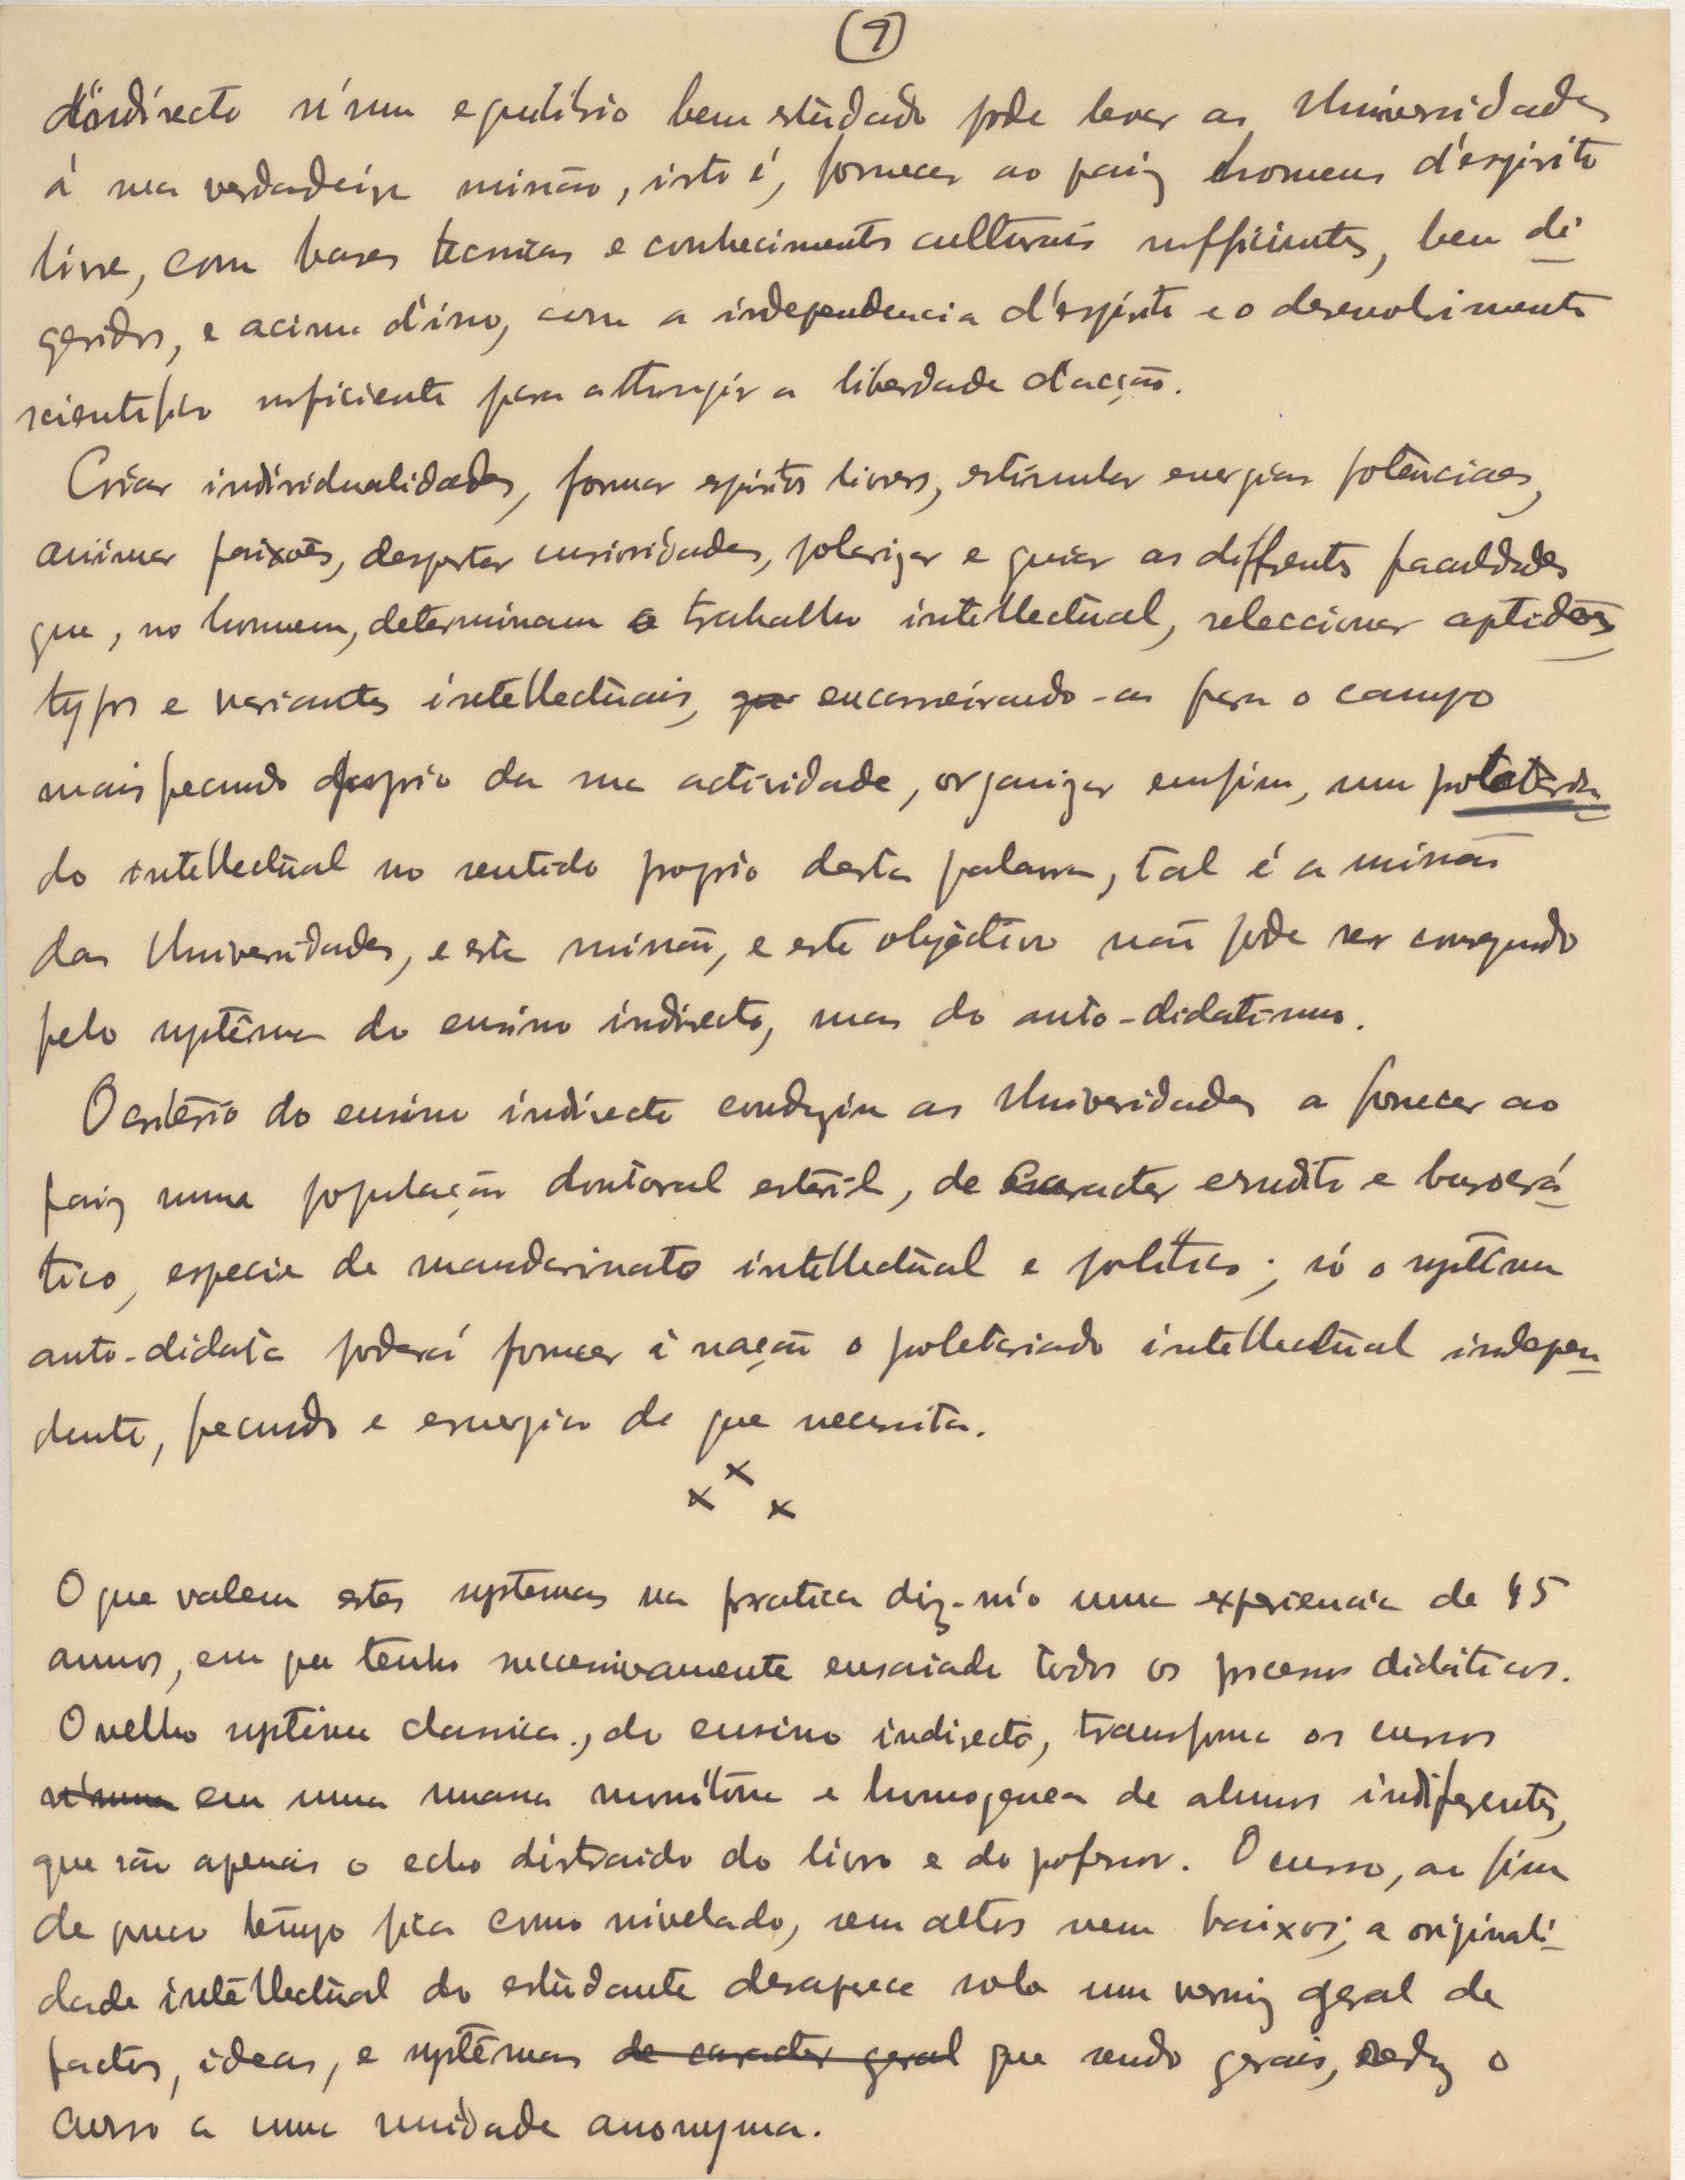 (9)
d'indirecto n'um equilibrio bem estudado pode levar as Universidades
á sua verdadeira missão, isto é, fornecer ao paiz homens d'espirito
livre, com bases tecnicas e conhecimentos culturais sufficientes, bem di
geridos, e acima d'isso, com a independencia d'espirito e o desenvolvimento
scientifico suficiente para attingir a liberdade d'acção.
Criar individualidades, formar espiritos livres, estimular energias potenciaes,
animar paixões, despertar curiosidades, polarizar e guiar as differentes faculdades
que, no homem, determinam o trabalho intellectual, seleccionar aptidões
typos e variantes intellectuais, que encarreirando-as para o campo
mais fecundo proprio da sua actividade, organizar emfim, um proletaria
do intellectual no sentido proprio desta palavra, tal é a missão
das Universidades, e esta missão, e este objectivo não pode ser conseguido
pelo systema do ensino indirecto, mas do auto-didatismo.
O criterio do ensino indirecto conduziu as Universidades a fornecer ao
paiz uma população doutoral esteril, de caracter erudito e burocrá
tico, especie de mandarinato intellectual e politico; só o systema
auto-didata poderá fornecer á nação o proletariado intellectual indepen
dente, fecundo e energico de que necessita.
x x x
O que valem estes systemas na pratica diz-nó-lo uma experiencia de 45
annos, em que tenho successivamente ensaiado todos os processos didáticos.
O velho systema classico, do ensino indirecto, transforma os cursos
n'uma em uma massa monótona e homogenea de alunos indiferentes,
que são apenas o echo distraido do livro e do professor. O curso, ao fim
de pouco tempo fica como nivelado, sem altos nem baixos; a originali-
dade intellectual do estudante desaparece sob um verniz geral de
factos, ideas, e systemas de caracter geral que sendo gerais, reduz o
curso a uma unidade anonyma.